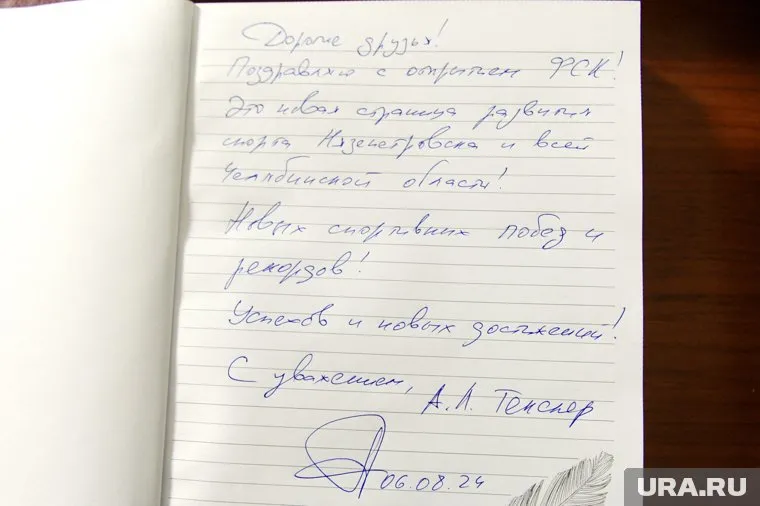 Дорогие друзья!
Поздравляю с открытием ФСК!
Это новая страница развития
спорта Нязепетровска и всей
Челябинской области!
Новых спортивных побед и
рекордов!
Успехов и новых достижений!
С уважением, А.Л. Текслер
06.08.24
URA.RU